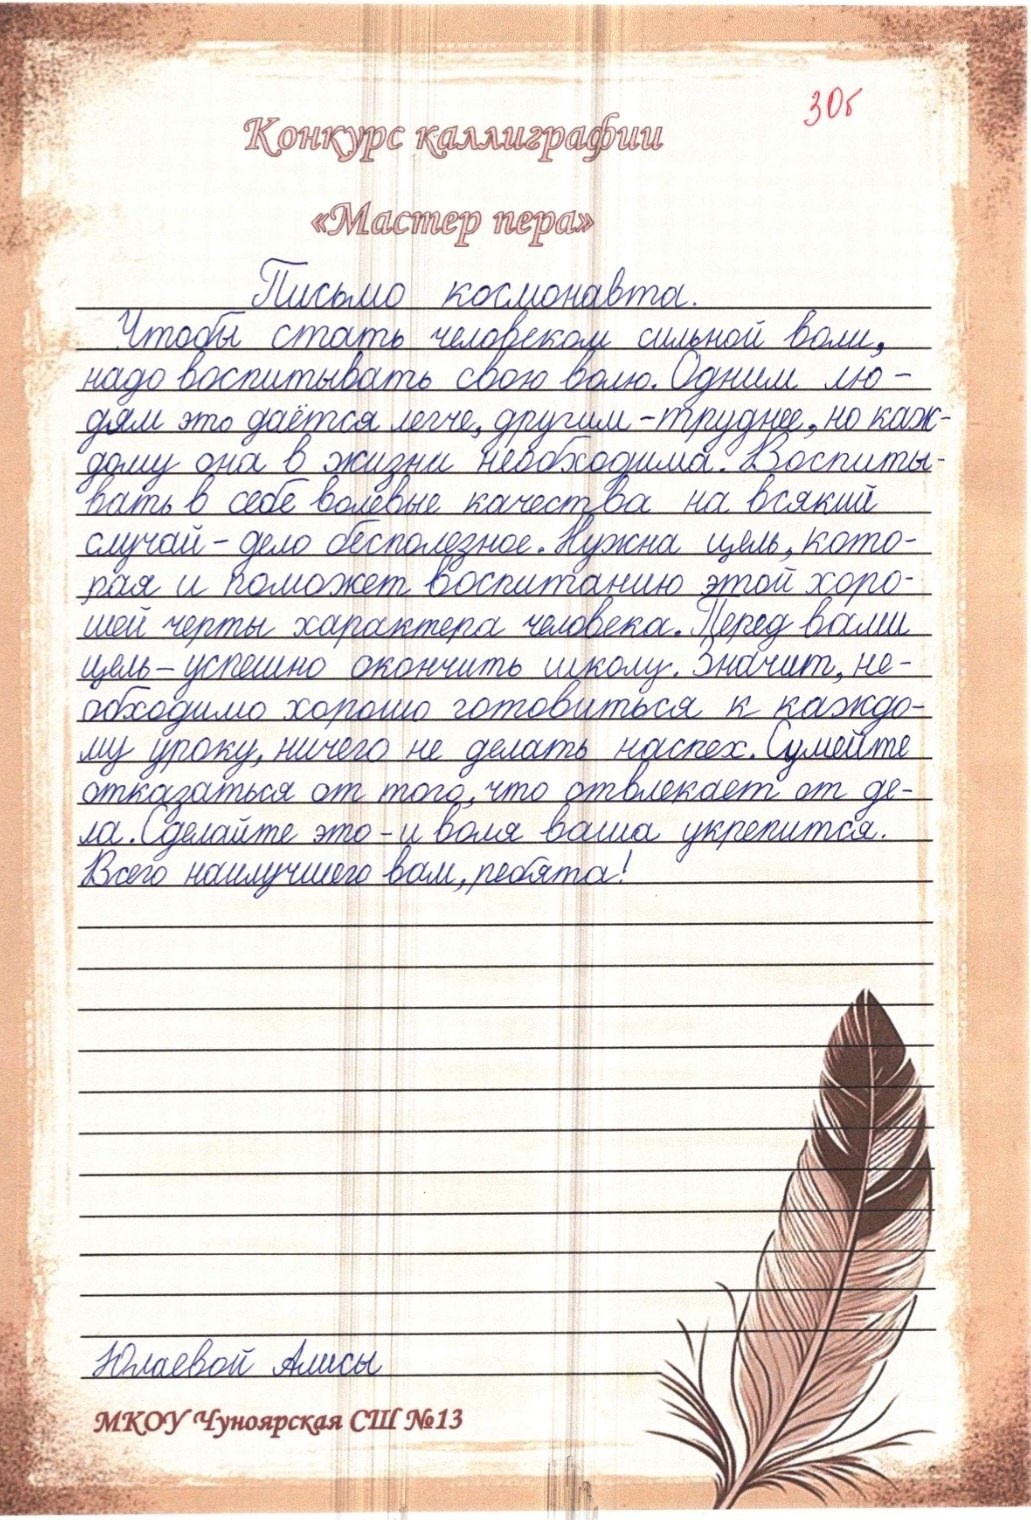 30б
Конкурс каллиграфии
«Мастер пера»
Письмо космонавта.
Чтобы стать человеком сильной воли,
надо воспитывать свою волю. Одним лю-
дям это даётся легче, другим - труднее, но каж-
дому она в жизни необходима. Воспиты-
вать в себе волевые качества на всякий
случай - дело бесполезное. Нужна цель, кото-
рая и поможет воспитанию этой хоро-
шей черты характера человека. Перед вами
цель - успешно окончить школу. Значит, не-
обходимо хорошо готовиться к каждо-
му уроку, ничего не делать наспех. Сумейте
отказаться от того, что отвлекает от де-
ла. Сделайте это - и воля ваша укрепится.
Всего наилучшего вам, ребята!
Юлаевой Алисы
МКОУ Чуноярская СШ №13